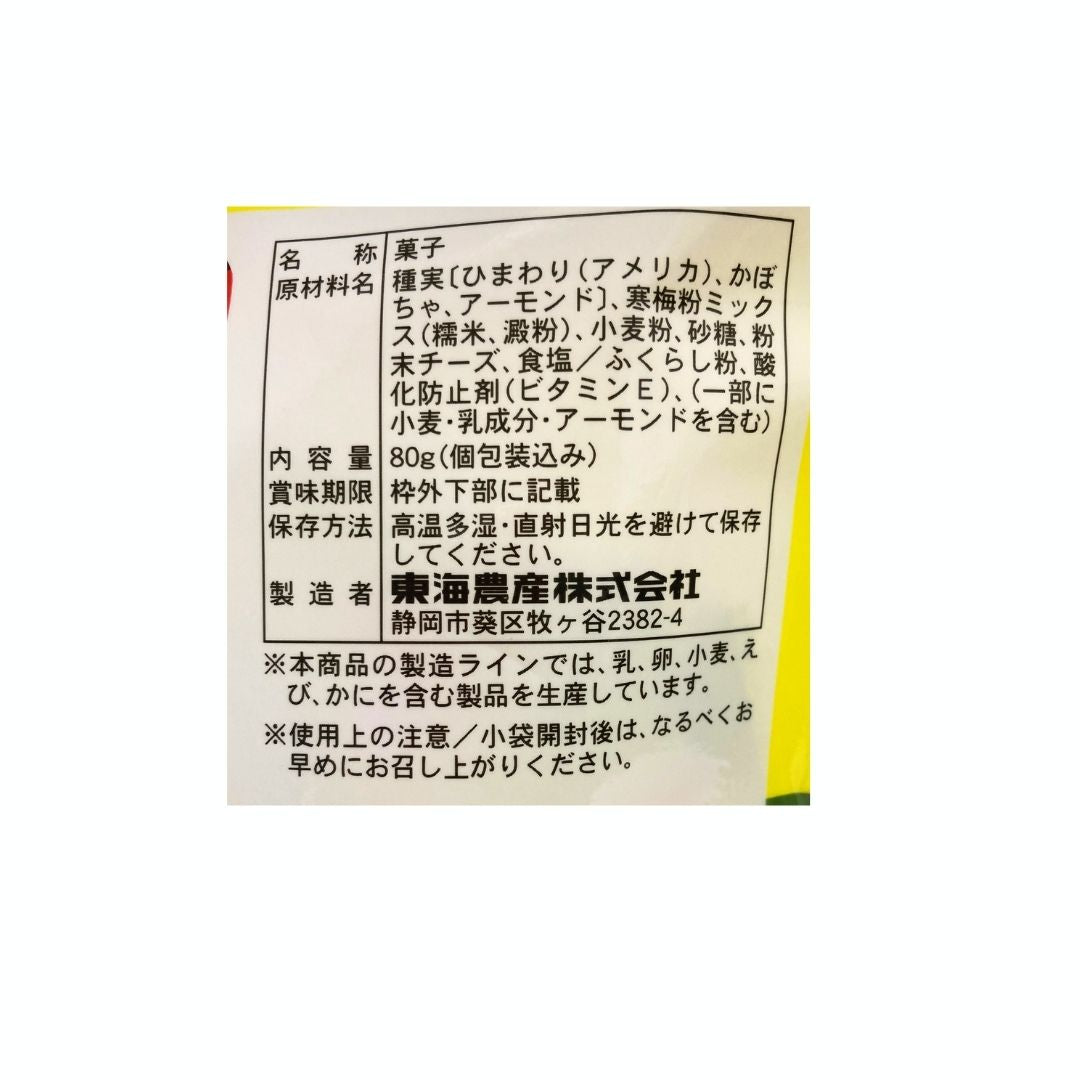 名称 菓子
原材料名 種実〔ひまわり(アメリカ)、かぼ
ちゃ、アーモンド〕、寒梅粉ミック
ス(糯米、澱粉)、小麦粉、砂糖、粉
末チーズ、食塩／ふくらし粉、酸
化防止剤(ビタミンE)、(一部に
小麦・乳成分・アーモンドを含む)
内容量 80g(個包装込み)
賞味期限 枠外下部に記載
保存方法 高温多湿・直射日光を避けて保存
してください。
製造者 東海農産株式会社
静岡市葵区牧ヶ谷2382-4
※本商品の製造ラインでは、乳、卵、小麦、え
び、かにを含む製品を生産しています。
※使用上の注意／小袋開封後は、なるべくお
早めにお召し上がりください。